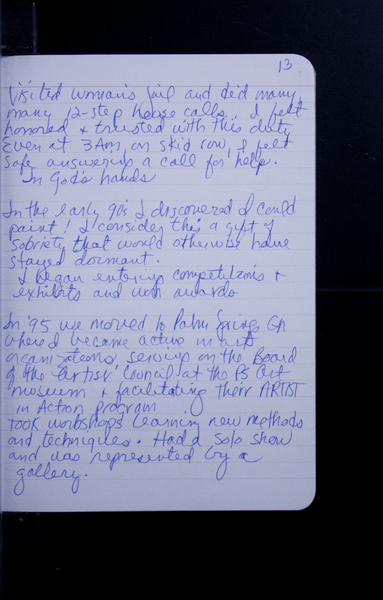 13
Visited woman's jail and did many,
many 12-step house calls. I felt
honored & trusted with this duty
Even at 3AM on skid row, I felt
safe answering a call for help.
In God's hands
In the early 90's I discovered I could
paint! I consider this a gift of
Sobriety that would otherwise have
stayed dormant.
I began entering competitions &
exhibits and won awards
In '95 we moved to Palm Springs CA
where I became active in arts
organizations, serving on the Board
of the Artists' Council at the PS Art
museum & facilitating their ARTIST
in Action program
Took workshops learning new methods
and techniques. Had a solo show
and was represented by a
gallery.